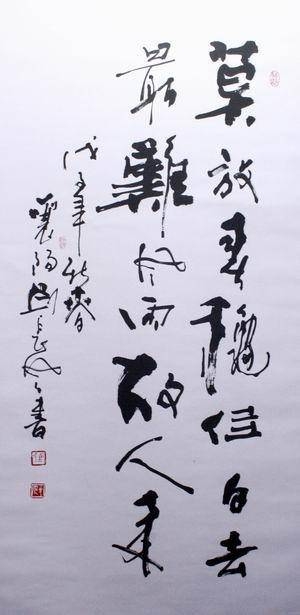 莫放春龝佳日去
最難風雨故人來
戊子年新春
襄陽劉書